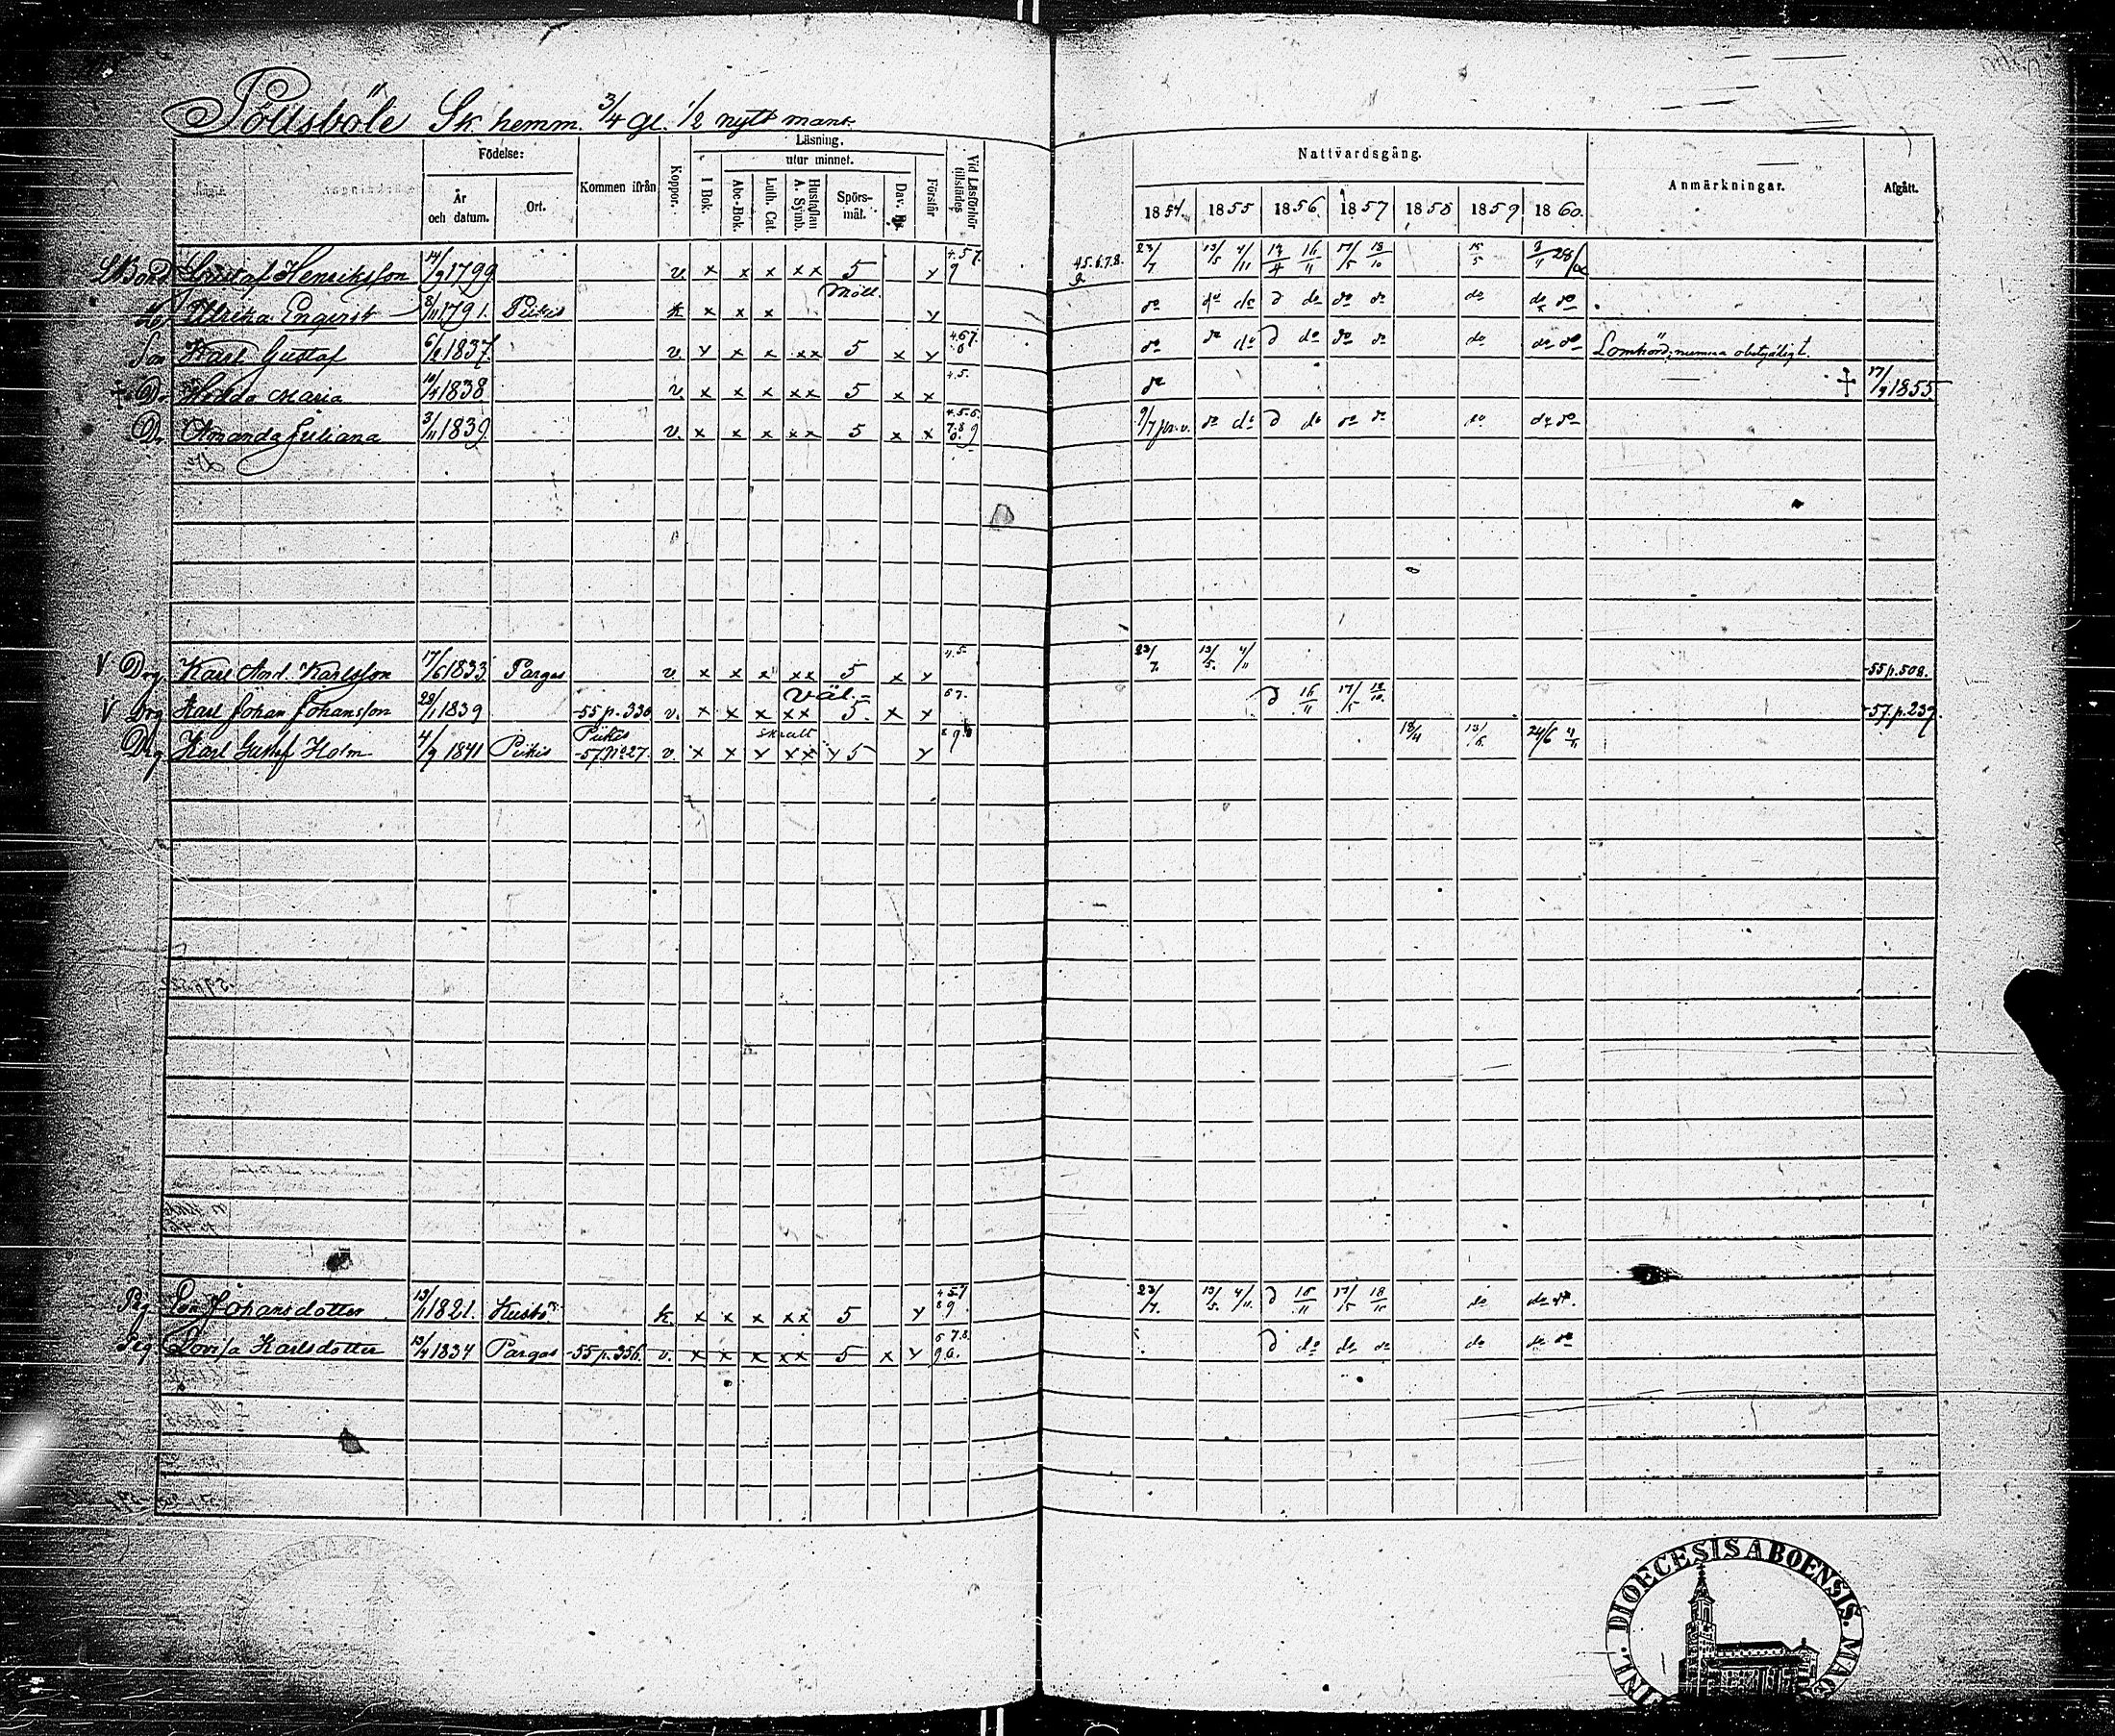 Sk. hemm. 3/4 gl. 1/2 nytt mant.
Födelse:
Läsning.
utur minnet.
Kommen ifrån
Koppor.
År och datum.
Ort.
I Bok.
Abc-Bok.
Luth. Cat.
Hustaflan A. Symb.
Spörs-mål.
Dav. Ps.
Förstår
Vid Läsförhör tillstädes
Nattvardsgång.
Anmärkningar.
Afgått.
1854. 1855 1856. 1857 1858 1859 1860.
Gustaf Henriksson 14/9 1799 v. x x x x x 5 x 4.5.7. 9 45.6.7.8. 23/7 13/5 4/11 16/11 17/5 18/10 15/5
Ulrika Engerist 8/11 1791. Piikis k x x x x do do do d do do do do do do
Son Karl Gustaf 6/2 1837 v. x x x x x 5 x x 467. do do do d do do do do do do Lomhörd, numera obetydligt.
+ Dr Hedda Maria 1838 v. x x x x x 5 x x 4.5. do + 17/9 1855.
Dr Amanda Juliana 3/11 1839 v. x x x x x 5 x x 4.5.6. 7.8 9 9/7 do do d do do do do do do
V Drg Karl And. Karlsson 17/6 1833. Pargas v. x x x x x 5 x x 4.5. 23/7. 13/5. 4/11 -55 p. 508.
väl -
V Drg Karl Johan Johansson 28/1 1839 -55 p. 330 v. x x x x x 5. x x 67. d 16/11 17/5 18/10. -57. p. 237.
Piikis
Drg Karl Gustaf Holm 4/9 1841 Piikis -57 No 27. v. x x x x x x 5 x 18/4 13/5 24/6
Pig Johansdotter 13/1 1821. Kustö k. x x x x x 5 x 4 5 7 8 9 23/7. 13/5. 4/11. d 16/11 17/5 18/10 do do do.
Pig Lovisa Karlsdotter 1834 Pargas -55 p. 356. v. x x x x x 5 x x 6 7.8. 9 6. d do do do do do do
DIOECESIS ABOENSIS.